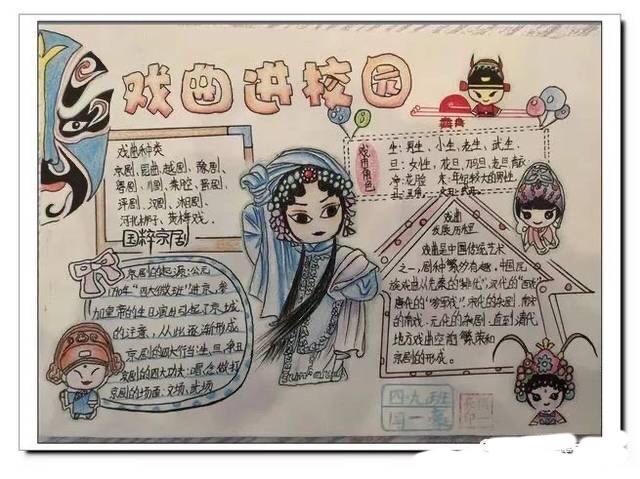 戏曲进校园
戏曲种类
京剧、昆曲、越剧、豫剧、
粤剧、川剧、秦腔、晋剧、
评剧、汉剧、湘剧、
河北梆子、黄梅戏.
国粹京剧
戏曲角色
生：男生、小生、老生、武生.
旦：女生、花旦、刀马旦、老旦、青衣
净：花脸 末：年纪较大的男性.
丑：丑角
戏曲
发展历程
戏曲是中国传统艺术
之一，剧种繁多有趣，中国民
族戏曲从先秦的“俳优”、汉代的“百戏”
唐代的“参军戏”、宋代的杂剧、南宋
的南戏、元代的杂剧，直到清代
地方戏曲空前繁荣和
京剧的形成。
京剧的起源：公元
1790年“四大徽班”进京，参
加皇帝的生日演出引起了京城
的注意，从此逐渐形成
京剧的四大行当：生、旦、净、丑
京剧的四大功夫：唱、念、做、打
京剧的场面：文场、武场
四.九班